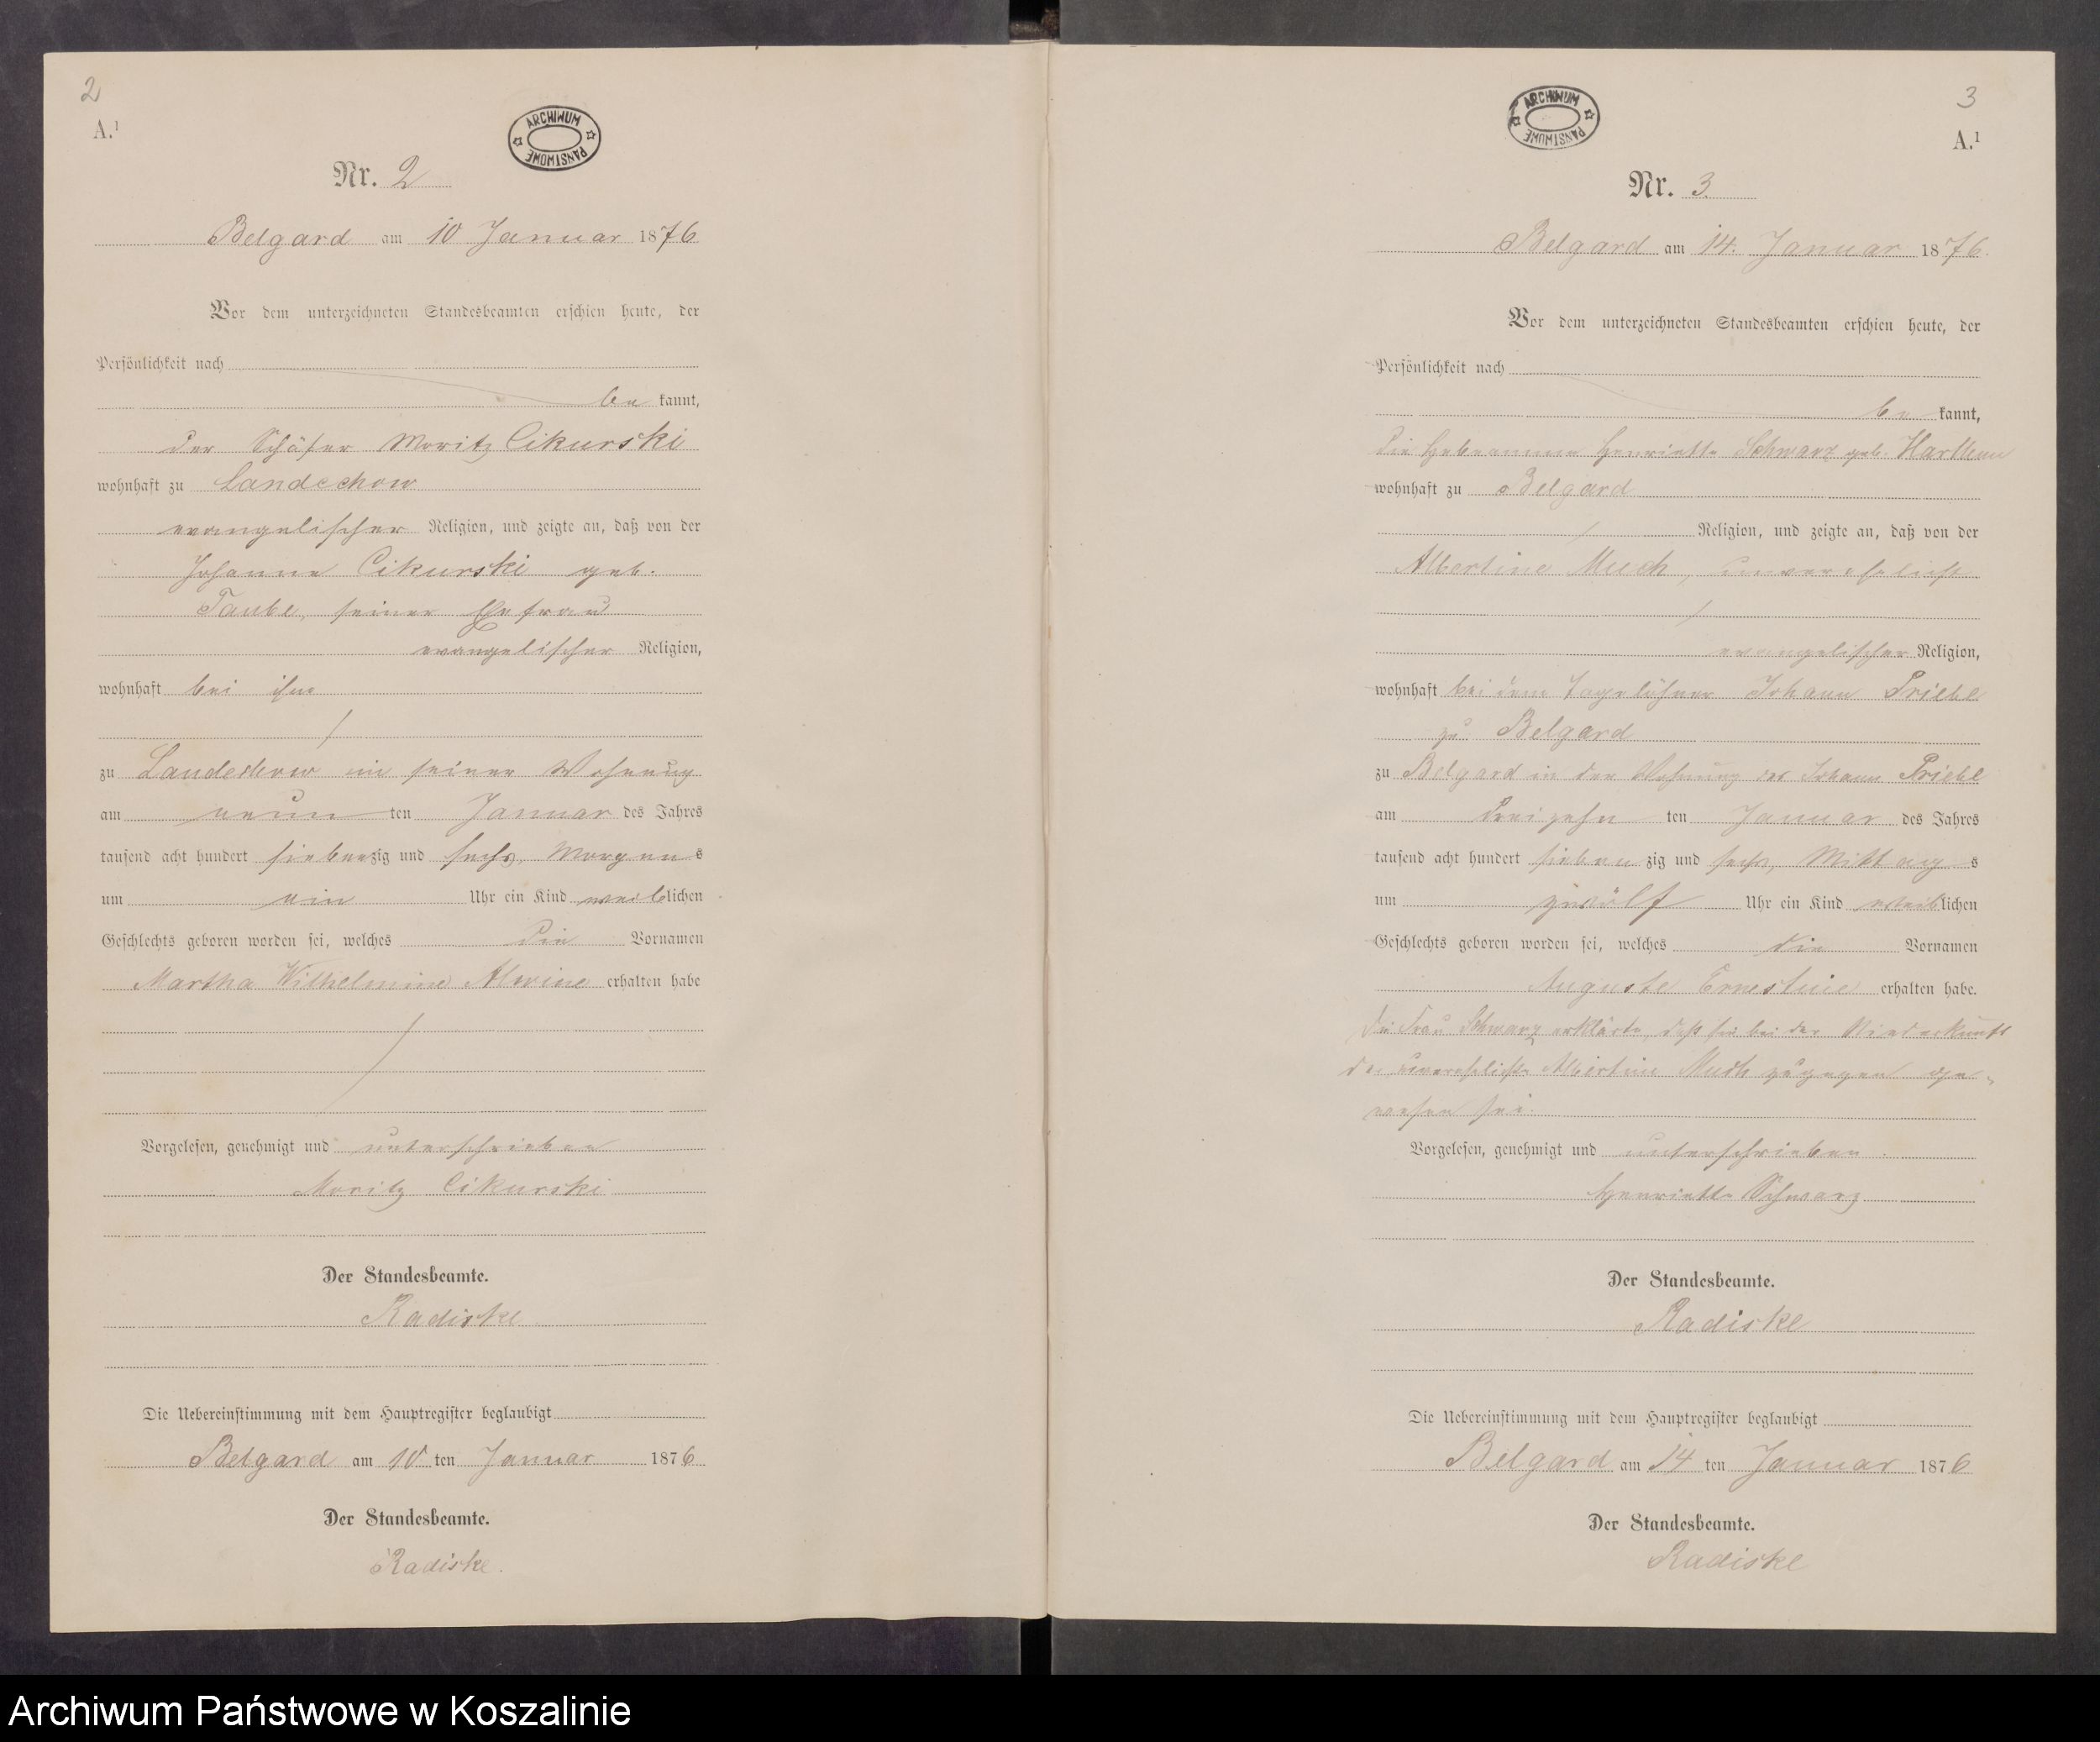 2
A.¹
ARCHIWUM PAŃSTWOWE
Nr. 2
Belgard am 10 Januar 1876
Vor dem unterzeichneten Standesbeamten erschien heute, der
Persönlichkeit nach
be kannt,
der Schäfer Moritz Cikurski
wohnhaft zu Landechow
evangelischer Religion, und zeigte an, daß von der
Johanne Cikurski geb.
Taube, seiner Ehefrau
evangelischer Religion,
wohnhaft bei ihm
zu Landechow in seiner Wohnung
am neun ten Januar des Jahres
tausend acht hundert siebenzig und sechs, Morgens
um ein Uhr ein Kind weiblichen
Geschlechts geboren worden sei, welches die Vornamen
Martha Wilhelmine Alwine erhalten habe
Vorgelesen, genehmigt und unterschrieben
Moritz Cikurski
Der Standesbeamte.
Radiske
Die Uebereinstimmung mit dem Hauptregister beglaubigt
Belgard am 10 ten Januar 1876
Der Standesbeamte.
Radiske.
3
A.¹
ARCHIWUM PAŃSTWOWE
Nr. 3
Belgard am 14. Januar 1876.
Vor dem unterzeichneten Standesbeamten erschien heute, der
Persönlichkeit nach
be kannt,
die Hebeamme Henriette Schwarz geb.
wohnhaft zu Belgard
Religion, und zeigte an, daß von der
Albertine Much, unverehelicht
evangelischer Religion,
wohnhaft bei dem Tagelöhner Johann Priebe
zu Belgard
zu Belgard in der Wohnung des Johann Priebe
am dreizehn ten Januar des Jahres
tausend acht hundert siebenzig und sechs, Mittags
um zwölf Uhr ein Kind weiblichen
Geschlechts geboren worden sei, welches die Vornamen
Auguste Ernestine erhalten habe.
Die Frau Schwarz erklärte, daß sie bei der Niederkunft
der unverehelichte Albertine Much zugegen ge-
wesen sei.
Vorgelesen, genehmigt und unterschrieben.
Henriette Schwarz
Der Standesbeamte.
Radiske
Die Uebereinstimmung mit dem Hauptregister beglaubigt
Belgard am 14 ten Januar 1876
Der Standesbeamte.
Radiske
Archiwum Państwowe w Koszalinie